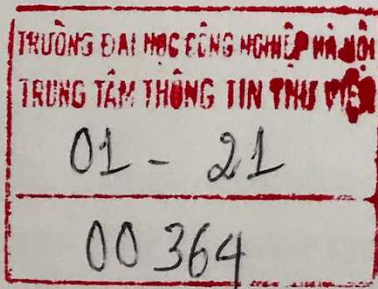 TRƯỜNG ĐẠI HỌC CÔNG NGHIỆP HÀ NỘI
TRUNG TÂM THÔNG TIN THƯ VIỆN
01 - 21
00364